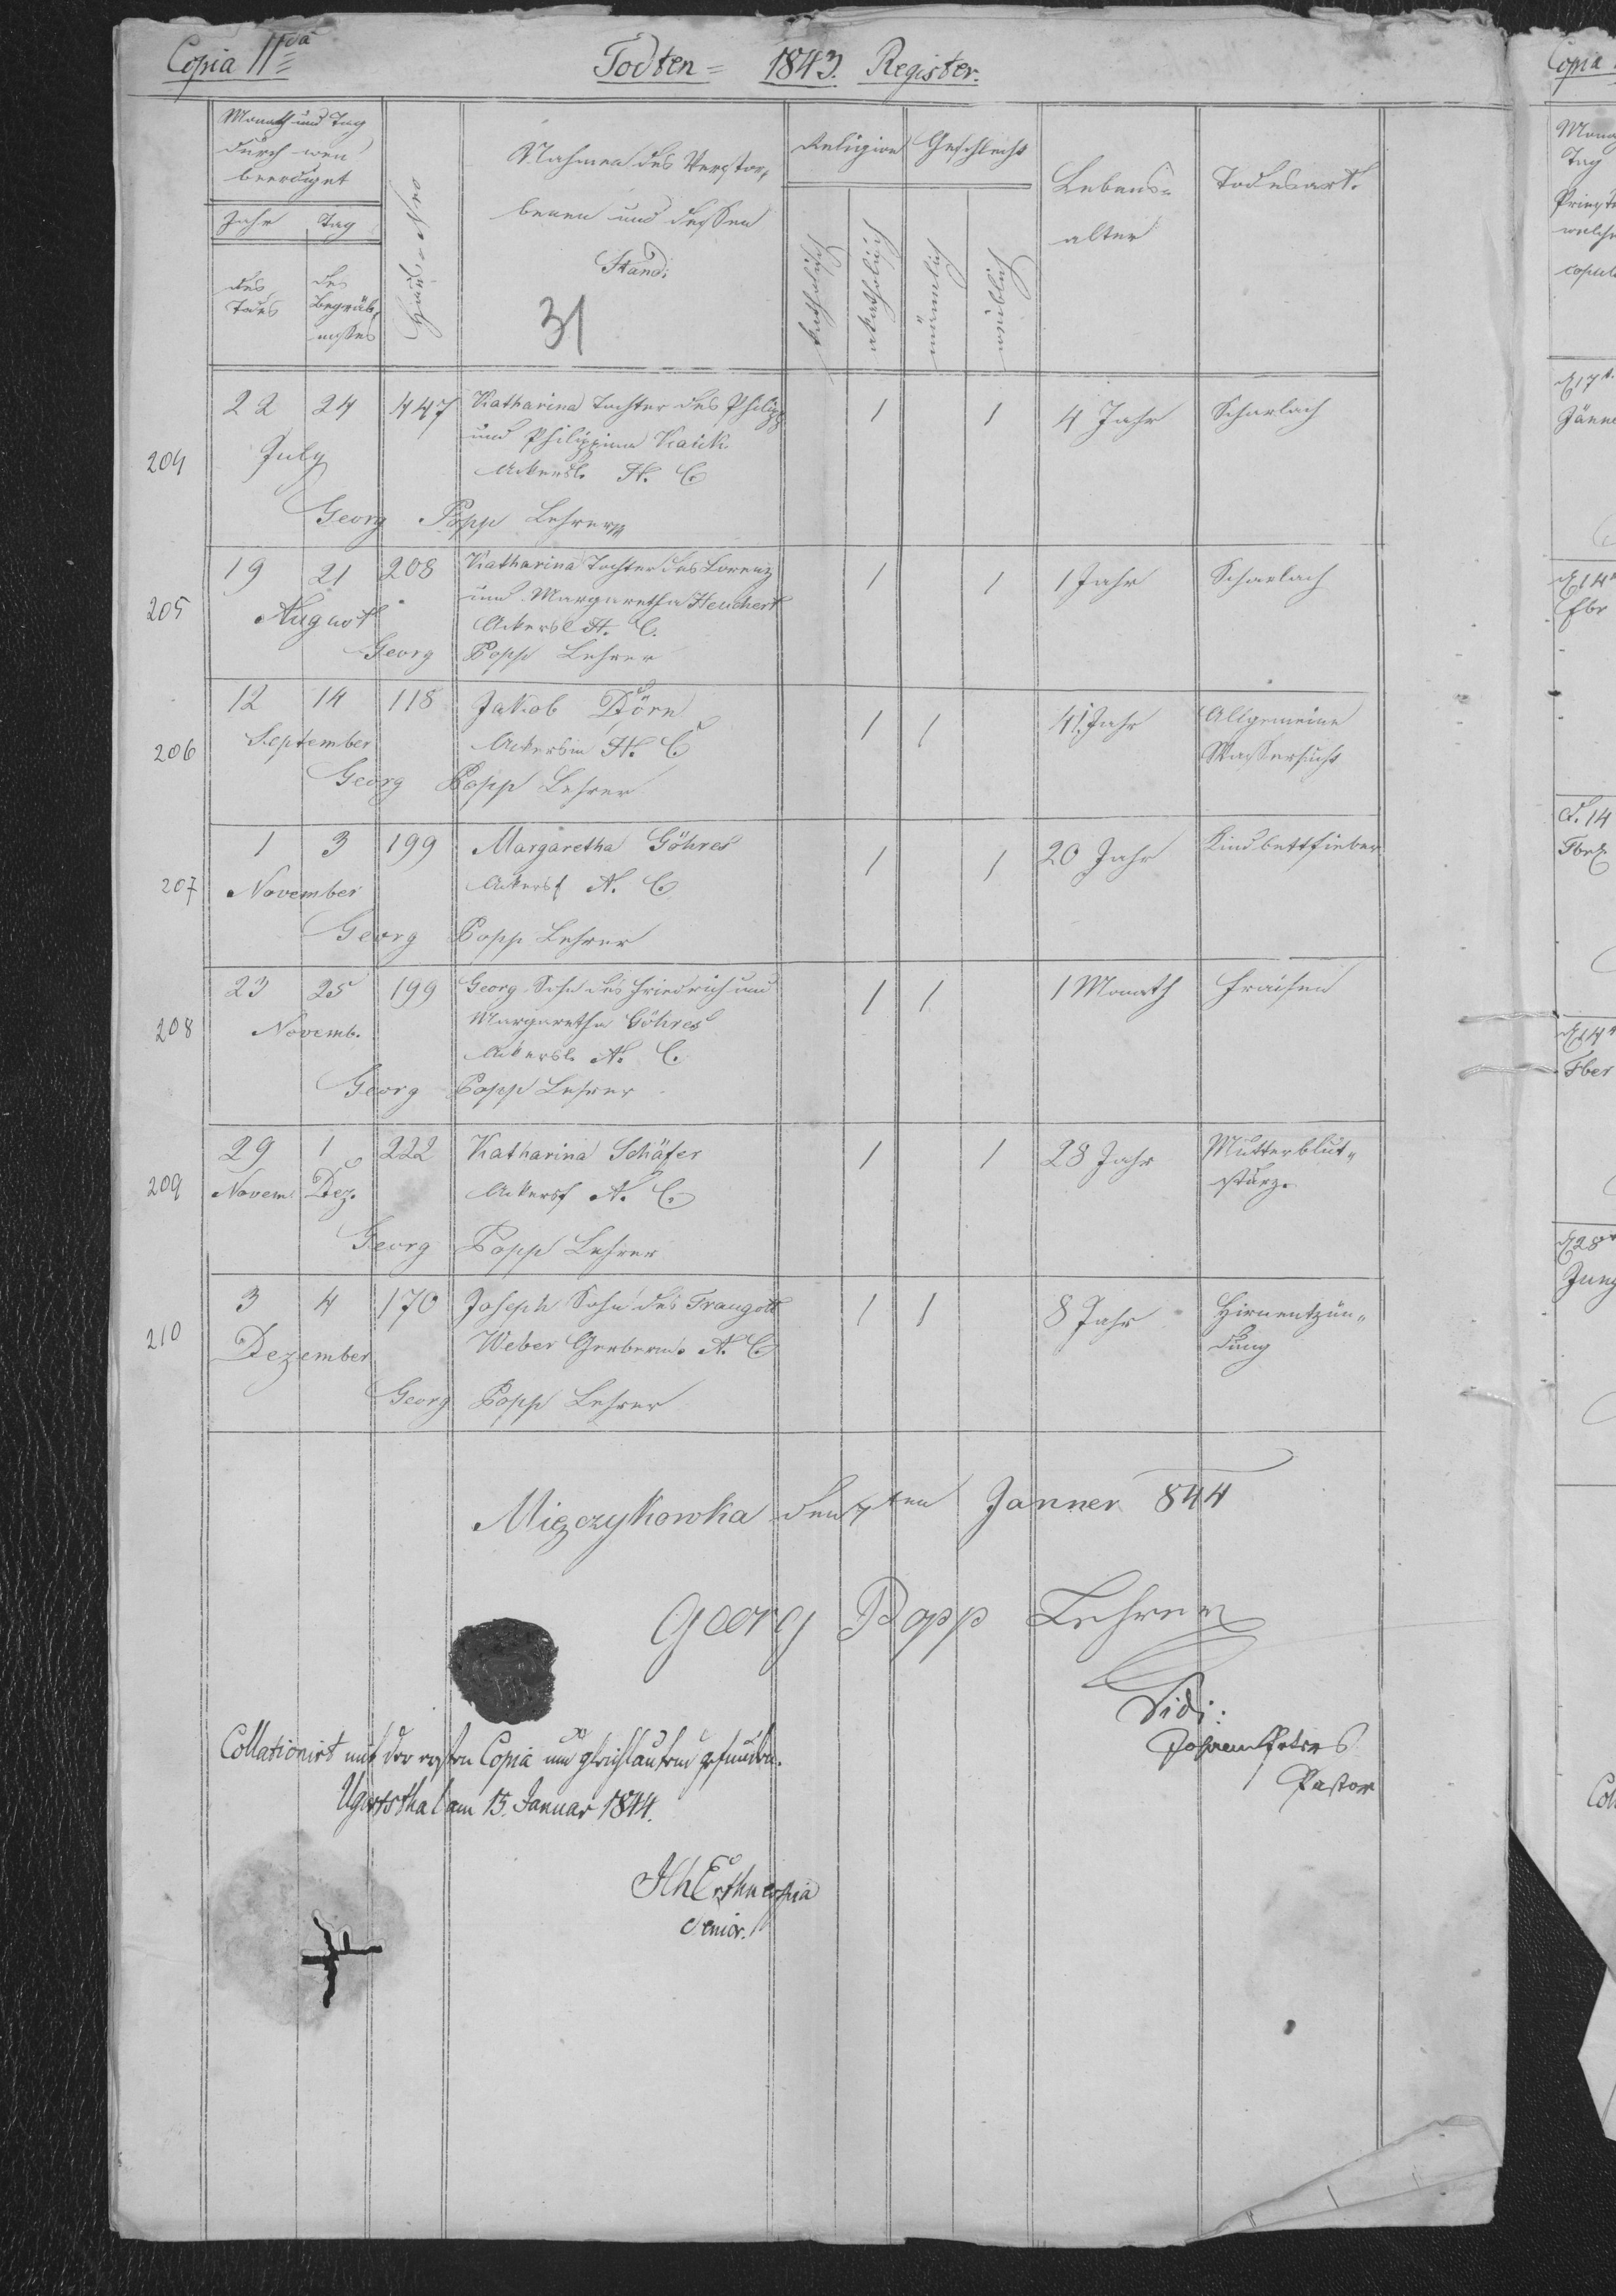 Copia IIda
Todten = 1843. Register.
Monath und Tag
durch wen
beerdiget
Jahr Tag
des
Todes
des
Begräb,
nisses
Haus-Nro
Nahmen des Verstor,
benen und dessen
Stand:
31
Religion
Geschlecht
katholisch
akatholisch
männlich
weiblich
Lebens=
alter
Todesart.
204
22 24 447 Katharina Tochter des Philipp 1 1 4 Jahr Scharlach
July und Philippina Kauk
Ackersl. H. C.
Georg Popp Lehrer
205
19 21 208 Katharina Tochter des Lorenz 1 1 1 Jahr Scharlach
August und Margaretha Heuchert
Ackersl H. C.
Georg Popp Lehrer
206
12 14 118 Jakob Dörn 1 1 41 Jahr Allgemeine
September Ackersm H. C. Wassersucht
Georg Popp Lehrer
207
1 3 199 Margaretha Göhres 1 1 20 Jahr Kindbettfieber
November Ackersf A. C.
Georg Popp Lehrer
208
23 25 199 Georg Sohn des Friedrich und 1 1 1 Monath Fraisen
Novemb. Margaretha Göhres
Ackersl. A. C.
Georg Popp Lehrer
209
29 1 222 Katharina Schäfer 1 1 28 Jahr Mutterblut„
Novem. Dez. Ackersf A. C. sturz.
Georg Popp Lehrer
210
3 4 170 Joseph Sohn des Traugott 1 1 8 Jahr Hirnentzün„
Dezember Weber Gerberm. A. C. dung
Georg Popp Lehrer
Miezczykowka den 7ten Janner 844
Georg Popp Lehrer
Vidi:
Pastor
Collationirt mit der ersten Copia und gleichlautend gefunden.
Ugartsthal am 15. Januar 1844.
Senior.
Copia
Tag
copul
Jänn
Fbr
d. 14
Fber
Juny
Coll